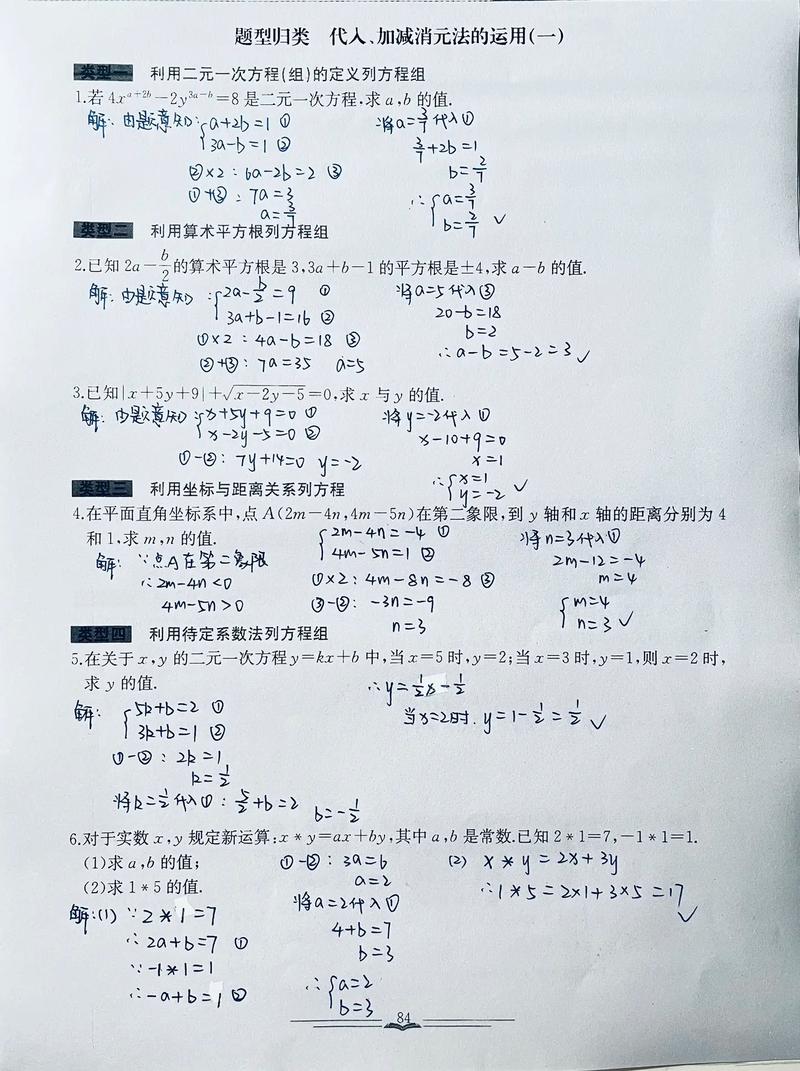 题型归类 代入、加减消元法的运用(一)
类型一 利用二元一次方程(组)的定义列方程组
1.若 4x^{a+2b}-2y^{3a-b}=8 是二元一次方程,求 a,b 的值.
解:由题意知:{a+2b=1 ① 将a=3/7代入①
3a-b=1 ② 3/7+2b=1
②×2:6a-2b=2 ③ b=2/7
①+③:7a=3 ∴{a=3/7
a=3/7 b=2/7 ✓
类型二 利用算术平方根列方程组
2.已知 2a-b/2的算术平方根是 3,3a+b-1 的平方根是±4,求 a-b 的值.
解:由题意知:{2a-b/2=9 ① 将a=5代入③
3a+b-1=16 ② 20-b=18
①×2:4a-b=18 ③ b=2
②+③:7a=35 a=5 ∴a-b=5-2=3 ✓
3.已知|x+5y+9|+√(x-2y-5)=0,求 x 与 y 的值.
解:由题意知:{x+5y+9=0 ① 将y=-2代入①
x-2y-5=0 ② x-10+9=0
①-②:7y+14=0 y=-2 x=1
∴{x=1
y=-2 ✓
类型三 利用坐标与距离关系列方程
4.在平面直角坐标系中,点 A(2m-4n,4m-5n)在第二象限,到 y 轴和 x 轴的距离分别为 4
和 1,求 m,n 的值. {2m-4n=-4 ① 将n=3代入①
解:∵点A在第二象限 4m-5n=1 ② 2m-12=-4
∴2m-4n<0 ①×2:4m-8n=-8 ③ m=4
4m-5n>0 ③-②:-3n=-9 {m=4
n=3 n=3 ✓
类型四 利用待定系数法列方程组
5.在关于 x,y 的二元一次方程 y=kx+b 中,当 x=5 时,y=2;当 x=3 时,y=1,则 x=2 时,
求 y 的值. ∴y=1/2x-1/2
解:{5k+b=2 ① 当x=2时.y=1-1/2=1/2 ✓
3k+b=1 ②
①-②:2k=1
k=1/2
将k=1/2代入①:5/2+b=2 b=-1/2
6.对于实数 x,y 规定新运算:x*y=ax+by,其中 a,b 是常数.已知 2*1=7,-1*1=1.
(1)求 a,b 的值; ①-②:3a=6 (2) x*y=2x+3y
(2)求 1*5 的值. a=2 ∴1*5=2×1+3×5=17 ✓
解:(1) ∵2*1=7 将a=2代入①
∴2a+b=7 ① 4+b=7
∵-1*1=1 b=3
∴-a+b=1 ② ∴{a=2
b=3
84